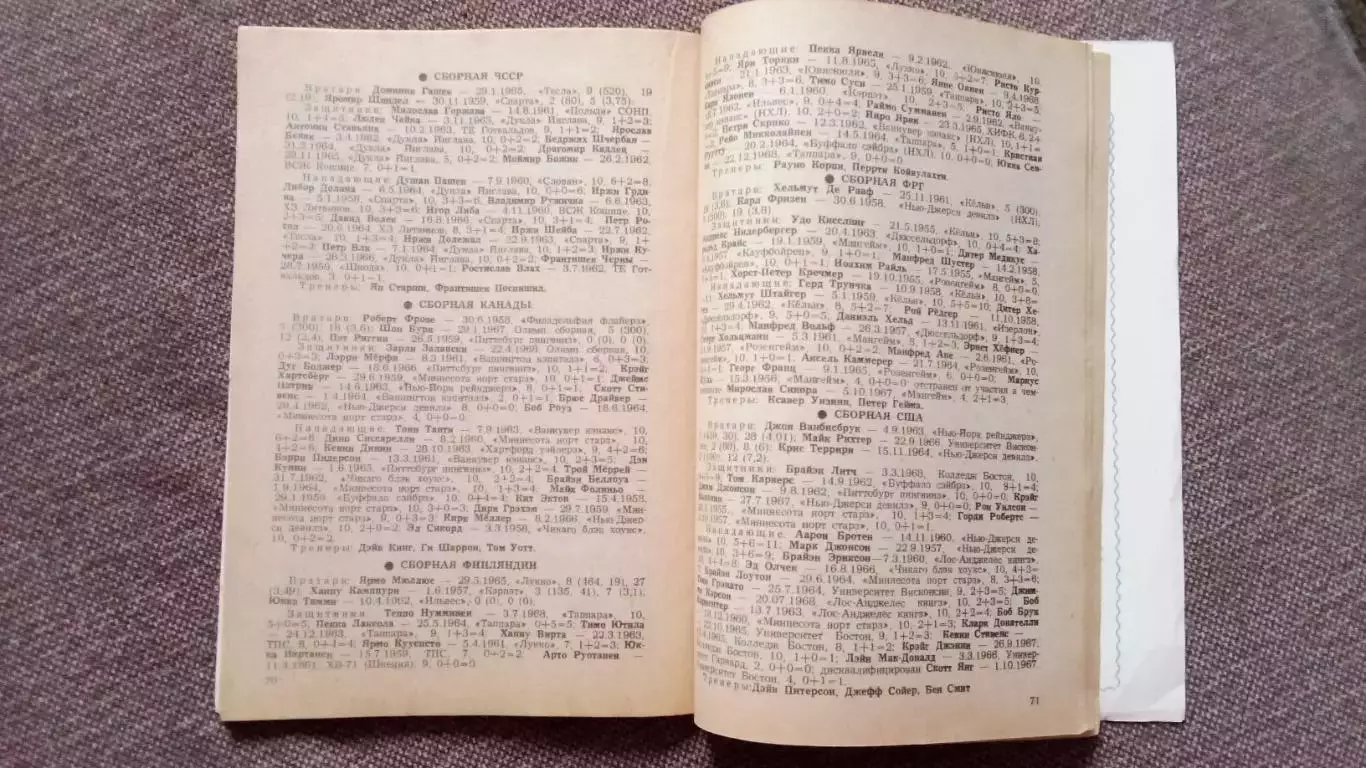 ● СБОРНАЯ ЧССР
Вратари: Доминик Гашек — 29.1.1965, «Тесла», 9 (520), 19
(2,19), Яромир Шиндел — 30.11.1959, «Спарта», 2 (80), 5 (3,75).
Защитники: Милослав Горжава — 14.8.1961 «Польди» СОНП,
10, 1+4=5; Людек Чайка — 3.11.1963, «Дукла» Йиглава, 9, 1+2=3;
Антонин Ставьяна — 10.2.1963, ТЕ Готвальдов, 9, 1+1=2; Ярослав
Бенак — 3.4.1962, «Дукла» Йиглава, 10, 0+2=2; Бедржих Щчербан —
31.3.1964, «Дукла» Йиглава, 10, 0+2=2; Драгомир Кадлец —
29.11.1965, «Дукла» Йиглава, 5, 0+2=2; Моймир Божик — 26.2.1962,
ВСЖ Кошице, 7, 0+1=1.
Нападающие: Душан Пашек — 7.9.1960, «Слован», 10, 6+2=8,
Либор Долана — 8.5.1964, «Дукла» Йиглава, 10, 6+0=6; Иржи Грди-
на — 5.1.1958, «Спарта», 10, 3+3=6; Владимир Ружичка — 6.6.1963,
ХЗ Литвинов, 10, 3+3=6; Игорь Либа — 4.11.1960, ВСЖ Кошице, 10,
2+3=5; Давид Волек — 16.8.1966, «Спарта», 10, 3+1=4; Петр Ро-
сол — 20.6.1964, ХЗ Литвинов, 8, 3+1=4; Иржи Шейба — 22.7.1962,
«Тесла», 10, 1+3=4; Иржи Долежал — 22.9.1963, «Спарта», 9, 1+
+2=3; Петр Влк — 7.1.1964, «Дукла» Йиглава, 9, 1+1=2; Иржи Ку-
чера — 26.3.1966, «Дукла» Йиглава, 10, 0+2=2; Франтишек Черны —
«Шкода», 10, 0+1=1; Ростислав Влах — 3.7.1962, ТЕ Гот-
вальдов, 3, 0+1=1.
Тренеры: Ян Старши, Франтишек Поспишил.
● СБОРНАЯ КАНАДЫ
Вратари: Роберт Фрозе — 30.6.1958, «Филадельфия флайерз»,
5 (300), 18 (3,6); Шон Бурк — 29.1.1967, Олимп. сборная, 5 (300),
12 (2,4), Пэт Риггин — 26.5.1959, «Питтбург пингвинз», 0 (0), 0 (0).
Защитники: Зарли Залапски — 22.4.1968, Олимп. сборная, 10,
0+3=3; Лэрри Мёрфи — 8.2.1961, «Вашингтон кэпиталз», 6, 0+3=3;
Дуг Боджер — 18.6.1966, «Питтсбург пингвинз», 10, 1+1=2; Крэйг
Хартсберг — 29.6.1959, «Миннесота норт старз», 10, 0+1=1; Джеймс
Пэтрик — 14.6.1963, «Нью-Йорк рейнджерз», 8, 0+1=1, Скотт Сти-
венс — 1.4.1964, «Вашингтон кэпиталз», 2, 0+1=1; Брюс Драйвер —
29.4.1962, «Нью-Джерси девилз», 8, 0+0=0; Боб Роуз — 18.6.1964,
«Миннесота норт старз», 4, 0+0=0.
Нападающие: Тони Танти — 7.9.1963, «Ванкувер кэнакс», 10,
6+2=8; Дино Сиссарелли — 8.2.1960, «Миннесота норт старз», 10,
4+2=6; Кевин Динин — 28.10.1963, «Хартфорд уэйлерз», 9, 4+2=6;
Бэрри Пидерсон — 13.3.1961, «Ванкувер кэнакс», 10, 2+3=5, Дэн
Куинн — 1.6.1965, «Питтсбург пингвинз», 10, 2+2=4, Трой Мёррей —
31.7.1962, «Чикаго блэк хоукс», 10, 2+2=4; Брайэн Беллоуз —
1.9.1964, «Миннесота норт старз», 10, 1+3=4; Майк Фолиньо —
29.1.1959, «Буффало сэйбрз», 10, 0+4=4; Кит Эктон — 15.4.1958,
«Миннесота норт старз», 10, 3+0=3; Дирк Грэхэм — 29.7.1959, «Мин-
несота норт старз», 9, 0+3=3; Кирк Мёллер — 8.2.1966, «Нью-Джер-
си девилз», 10, 2+0=2; Эл Сикорд — 3.3.1958, «Чикаго блэк хоукс»,
10, 0+2=2.
Тренеры: Дэйв Кинг, Ги Шаррон, Том Уотт.
● СБОРНАЯ ФИНЛЯНДИИ
Вратари: Ярмо Мюллюс — 29.5.1965, «Лукко», 8 (464, 19), 27
(3,49), Ханну Кампури — 1.6.1957, «Карпат», 3 (135, 41), 7 (3,1);
Юкка Тамми — 10.4.1962, «Ильвес», 0 (0), 0 (0).
Защитники: Теппо Нумминен — 3.7.1968, «Таппара», 10,
5+0=5, Пекка Лаксола — 25.5.1964, «Таппара» 0+5=5; Тимо Ютила
— 24.12.1963, «Таппара», 9, 1+3=4; Ханну Вирта — 22.3.1963,
ТПС, 8, 0+4=4; Ярмо Куусисто — 5.4.1961, «Лукко», 7, 1+2=3; Юк-
— 15.7.1959, ТПС, 7, 0+2=2, Арто Руотанен —
11.4.1961, ХВ-71 (Швеция), 9, 0+0=0
70
Нападающие: Пекка Ярвеля — 9.2.1962, «Юпяскюля», 10,
Яри Торкки — 11.8.1965, «Лукко», 10, 5+2=7; Ристо Кур-
21.1.1963, «Ювяскюля», 9, 3+3=6; Янне Оянен — 9.4.1968
«Таппара», 8, 3+3=6; Тимо Суси — 25.1.1959, «Таппара», 10, 2+3=5;
Яловен — 6.1.1960, «Карпат», 10, 2+3=5, Ристо Яло —
1962, «Ильвес», 9, 0+4=4; Раймо Сумманен — 2.9.1962, «Ванку-
кэнакс» (НХЛ), 10, 2+0=2; Киро Ярви — 23.3.1965, ХИФК, 6, 2+
Петри Скрико — 12.3.1962, «Ванкувер кэнакс» (НХЛ), 10, 1+1=
Рейо Микколайнен — 14.5.1964, «Таппара», 5, 1+0=1, Кристиан
Руутту — 20.2.1964, «Буффало сэйбрз» (НХЛ), 10, 0+0=0, Юкка Сеп-
— 22.12.1968, «Таппара», 9, 0+0=0.
Тренеры: Рауно Корпи, Перрти Койвулахти.
● СБОРНАЯ ФРГ
Вратари: Хельмут Де Рааф — 25.11.1961, «Кёльн», 5 (300),
(3,6), Карл Фризен — 30.6.1958, «Нью-Джерси девилз» (НХЛ),
(300), 19 (3,8)
Защитники: Удо Кисслинг — 21.5.1955, «Кёльн», 10, 5+3=8;
Нидербергер — 20.4.1963, «Дюссельдорф», 10, 0+4=4; Ха-
Крайс — 19.1.1959, «Мангейм», 10, 1+0=1; Дитер Медикус —
1957, «Кауфбойрен», 9, 1+0=1, Манфред Шустер — 14.2.1958,
«Кауфбойрен», 10, 0+1=1; Иоахим Райль — 17.5.1955, «Мангейм», 5,
Хорст-Петер Кречмер — 19.10.1955, «Розенгейм», 8, 0+0=0.
Нападающие: Герд Трунчка — 10.9.1958, «Кёльн», 10, 3+8=
Хельмут Штайгер — 5.1.1959, «Кёльн», 10, 5+5=10; Дитер Хе-
29.4.1962, «Кёльн», 9, Рой Рёдгер — 11.10.1958,
«Дюссельдорф», 9, 5+0=5; Даниэль Хельд — 13.11.1961, «Изерлон»,
3+1=4, Манфред Вольф — 26.3.1957, «Дюссельдорф», 9, 1+3=4;
Хольцманн — 5.3.1961, «Мангейм», 8, 1+2=3; Эрнст Хёфнер —
1957, «Розенгейм», 10, 0+2=2, Манфред Аве — 2.8.1961, «Ро-
10, 1+0=1; Аксель Каммерер — 21.7.1964, «Розенгейм», 10,
Георг Франц — 9.1.1965, «Розенгейм», 6, 0+0=0; Маркус
— 15.3.1956, «Мангейм», 4, 0+0=0 отстранен от участия в чем-
Мирослав Сикора — 5.10.1957, «Мангейм», 4, 2+1=3.
Тренеры: Ксавер Унзинн, Петер Гейма.
● СБОРНАЯ США
Вратари: Джон Ванбисбрук — 4.9.1963, «Нью-Йорк рейнджерз»,
7 (419, 30), 28 (4,01); Майк Рихтер — 22.9.1966, Университет Вискон-
син, 2 (80), 8 (6); Крис Террири — 15.11.1964, «Нью-Джерси девилз»,
(100), 12 (7,2).
Защитники: Брайэн Литч — 3.3.1968, Колледж Бостон, 10,
Том Карверс — 14.9.1962, «Буффало сэйбрз», 10, 0+1=4;
Джим Джонсон — 9.8.1962, «Питтсбург пингвинз», 10, 0+0=0, Крэйг
— 27.7.1967, «Нью-Джерси девилз», 9, 0+3=3; Рон Уилсон —
1955, «Миннесота норт старз», 10, 1+3=4; Горди Робертс —
1957, «Миннесота норт старз», 10, 0+1=1.
Нападающие: Аарон Бротен — 14.11.1960, «Нью-Джерси де-
вилз», 10, 5+6=11; Марк Джонсон — 22.9.1957, «Нью-Джерси де-
10, 3+6=9; Брайэн Эриксон—7.3.1960, «Лос-Анджелес кингз»,
4+4=8; Эд Олчек — 16.8.1966, «Чикаго блэк хоукс», 10, 4+3=
7, Брайэн Лоутон — 29.6.1964, «Миннесота норт старз», 8, 3+3=6;
Гранато — 25.7.1964, Университет Висконсин, 9, 2+3=5; Джим-
ми Карсон — 20.07.1968, «Лос-Анджелес кингз», 10, 2+3=5; Боб
Карпентер — 13.7.1963, «Лос-Анджелес кингз», 10, 2+2=4; Боб Брук
— 18.12.1960, «Миннесота норт старз», 10, 1+2=3; Кларк Донателли
— 22.10.1965, Университет Бостон, 9, 1+2=3; Кевин Стивенс —
1965, Колледж Бостон, 8, 1+1=2; Крэйг Джэнни — 26.9.1967,
Колледж Бостон, 10, 1+0=1; Лэйн Мак-Доналд — 3.3.1966, Универ-
ситет Гарвард, 2, 0+0=0; дисквалифицирован Скотт Янг — 1.10.1967
Университет Бостон, 4, 0+1=1.
Тренеры: Дэйв Питерсон, Джефф Сойер, Бен Смит
71